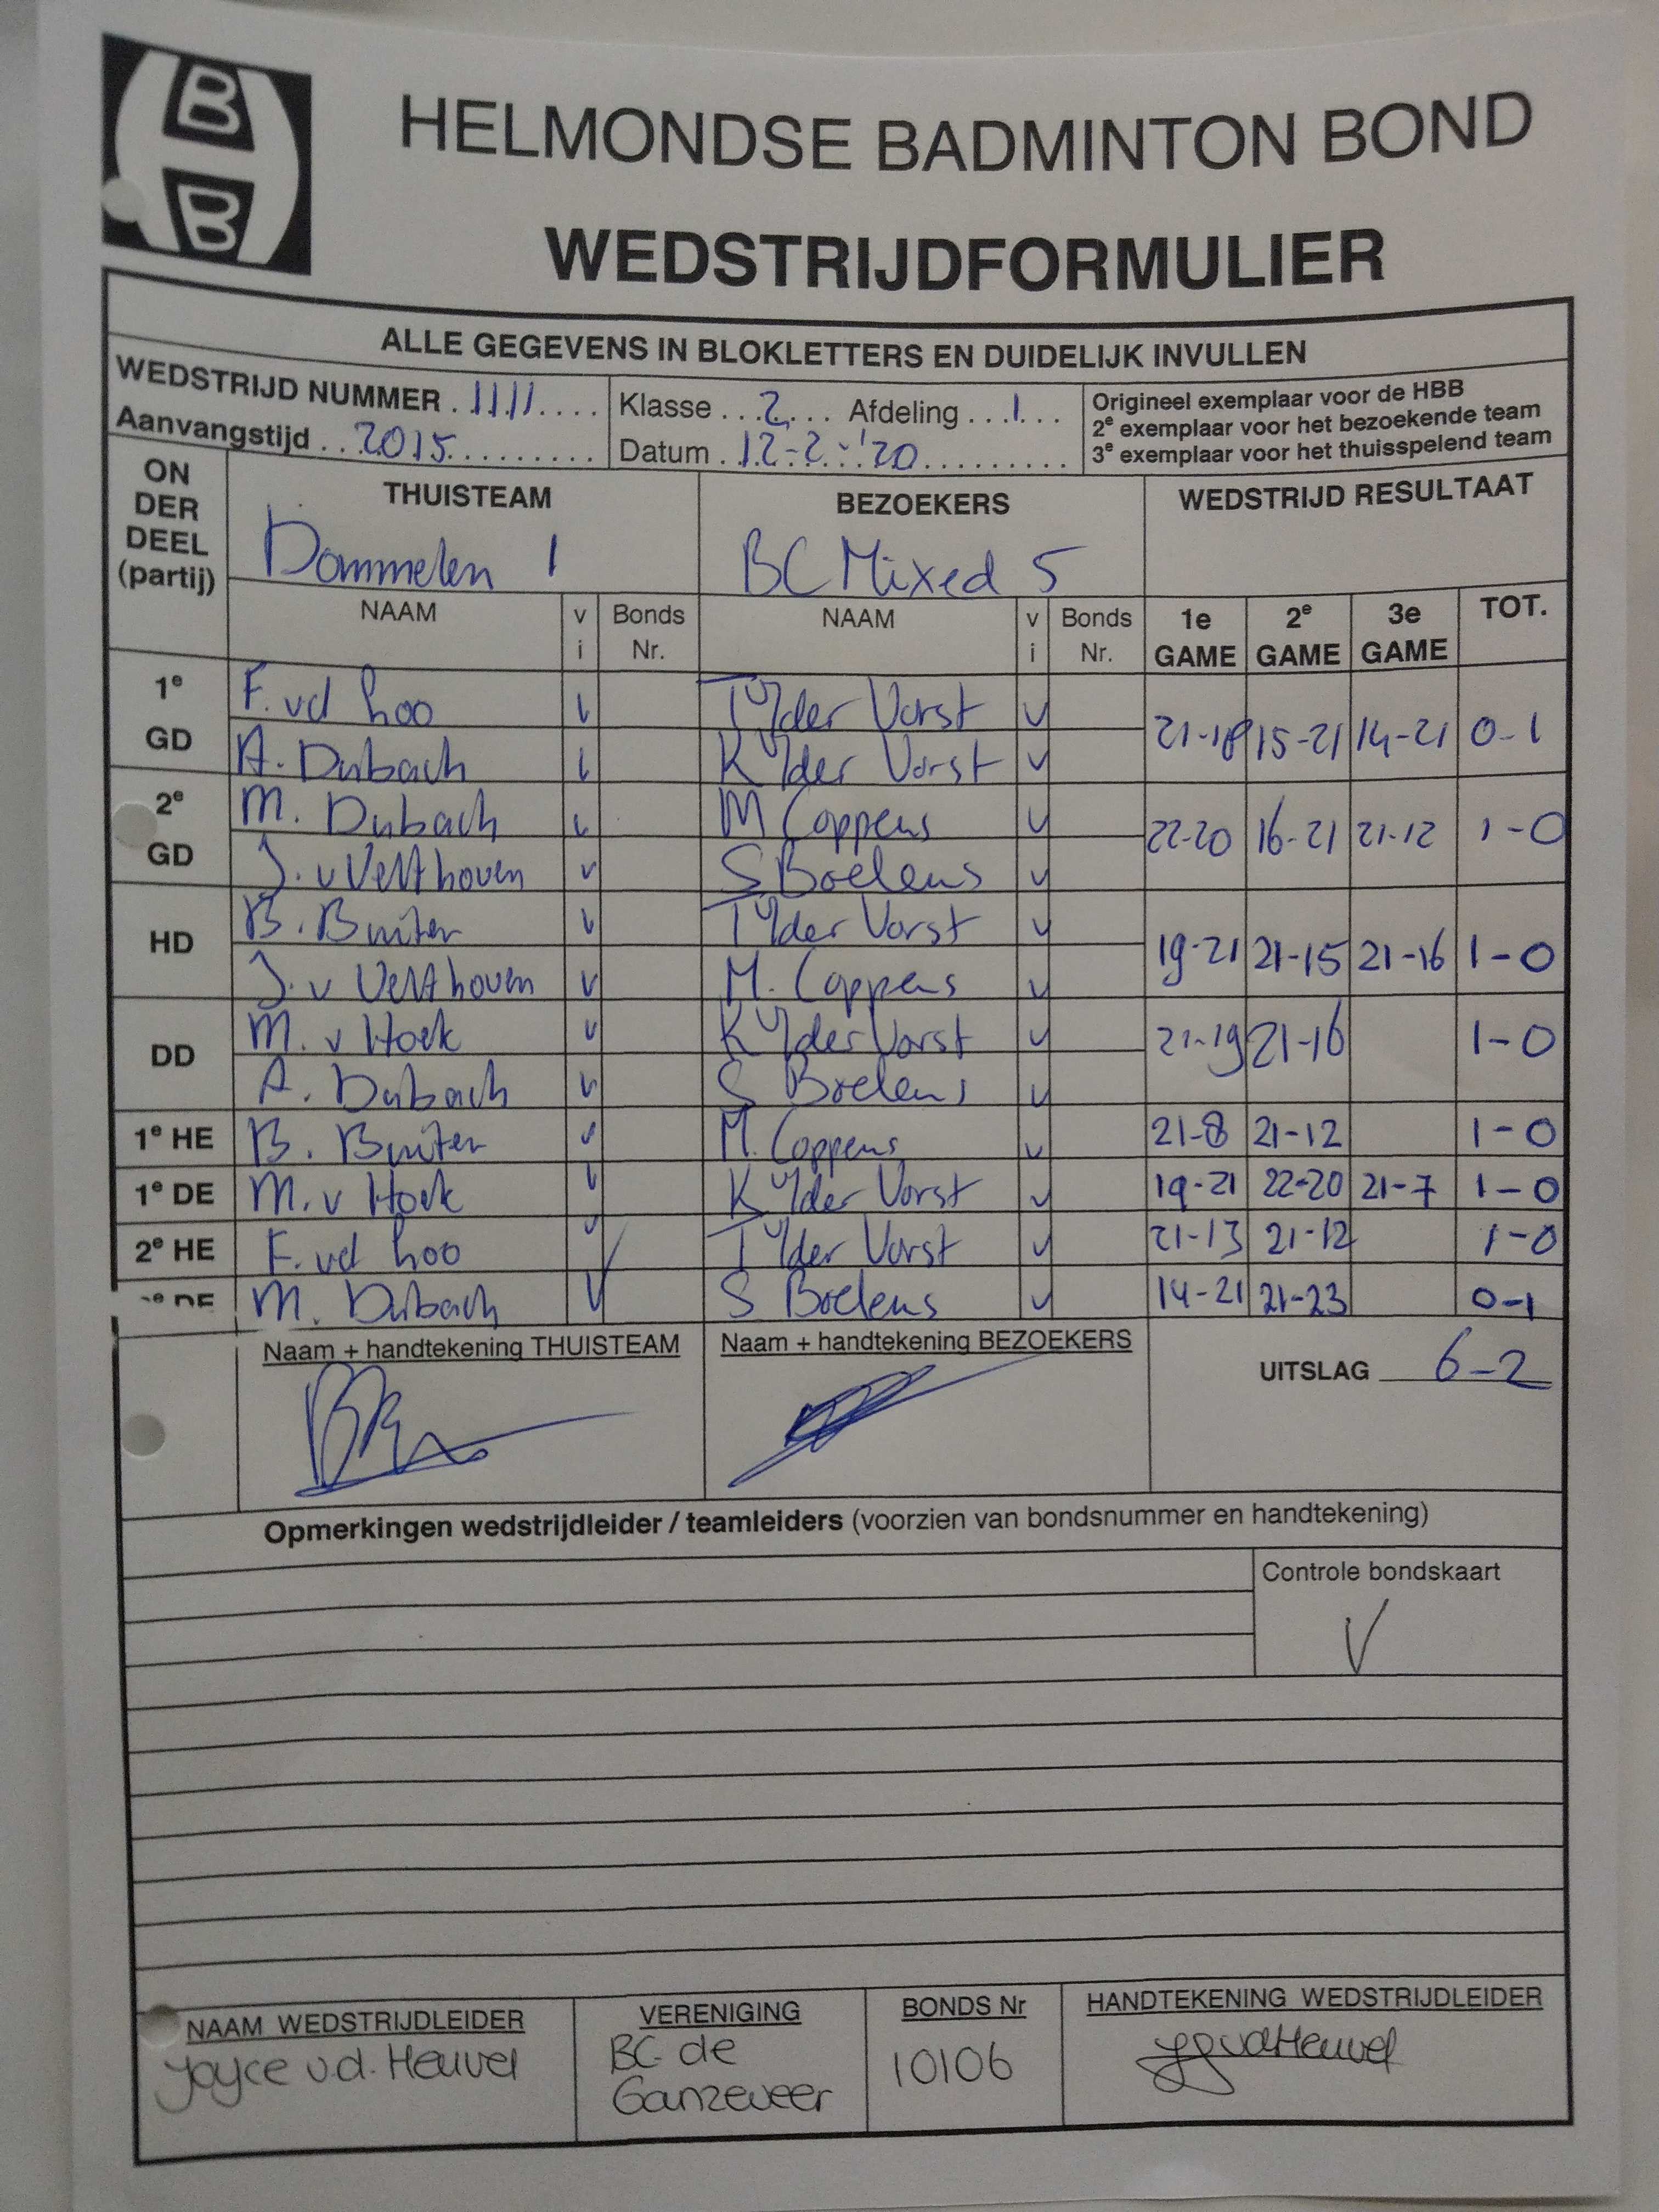 B
B
HELMONDSE BADMINTON BOND
WEDSTRIJDFORMULIER
ALLE GEGEVENS IN BLOKLETTERS EN DUIDELIJK INVULLEN
WEDSTRIJD NUMMER . 1111 . . . . Klasse . . . 2 . . . Afdeling . . . 1 . . . Origineel exemplaar voor de HBB
2e exemplaar voor het bezoekende team
Aanvangstijd . . 2015 . . . . . . . . . Datum . 12-2-'20 . . . . . . . . . 3e exemplaar voor het thuisspelend team
ON DER DEEL (partij) THUISTEAM BEZOEKERS WEDSTRIJD RESULTAAT
Dommelen 1 BC Mixed 5
NAAM v i Bonds Nr. NAAM v i Bonds Nr. 1e GAME 2e GAME 3e GAME TOT.
1e GD F. vd Loo v T IJder Vorst v 21-18 15-21 14-21 0-1
A. Dubach v K IJder Vorst v
2e GD M. Dubach v M Coppens v 22-20 16-21 21-12 1-0
J. v Velthoven v S Boelens v
HD B. Buiter v T IJder Vorst v 19-21 21-15 21-16 1-0
J. v Velthoven v M. Coppens v
DD M. v Hoek v K IJder Vorst v 21-19 21-16 1-0
A. Dubach v S Boelens v
1e HE B. Buiter v M. Coppens v 21-8 21-12 1-0
1e DE M. v Hoek v K IJder Vorst v 19-21 22-20 21-7 1-0
2e HE F. vd Loo v T IJder Vorst v 21-13 21-12 1-0
DE M. Dubach v S Boelens v 14-21 21-23 0-1
Naam + handtekening THUISTEAM Naam + handtekening BEZOEKERS UITSLAG 6-2
Opmerkingen wedstrijdleider / teamleiders (voorzien van bondsnummer en handtekening)
Controle bondskaart
V
NAAM WEDSTRIJDLEIDER VERENIGING BONDS Nr HANDTEKENING WEDSTRIJDLEIDER
Joyce v.d. Heuvel BC de Ganzeveer 10106 JJ vd Heuvel